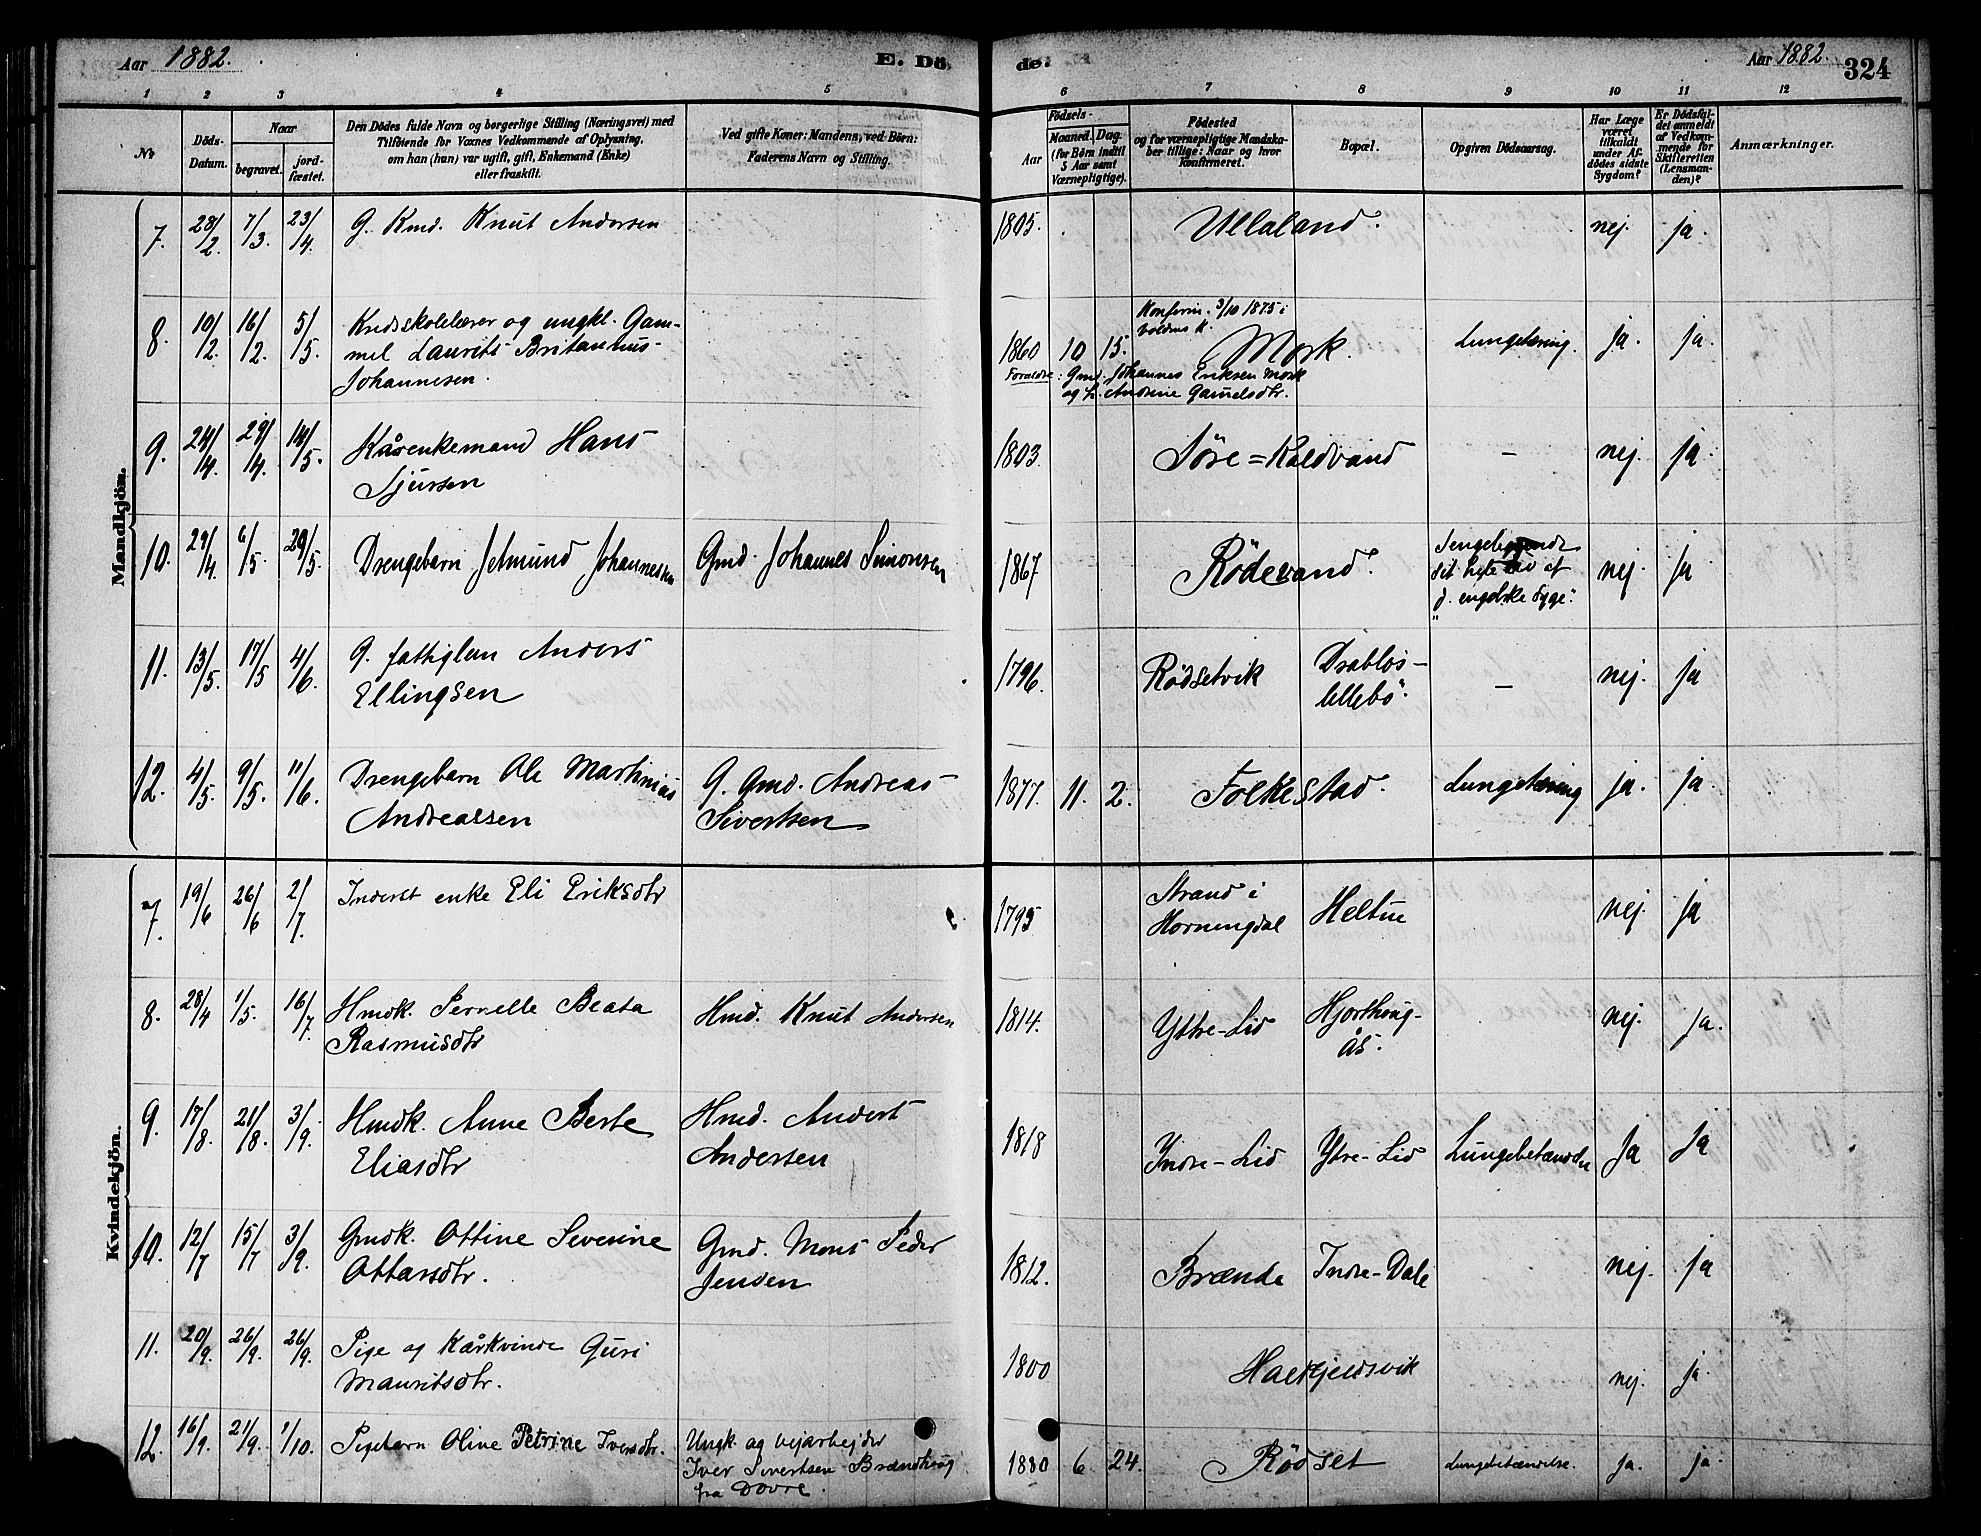 Aar 1882. E. Dö- de. Aar 1882. 324
1 2 3 4 5 6 7 8 9 10 11 12
No
Döds-
Datum.
Naar
begravet.
jord-
fæstet.
Den Dödes fulde Navn og borgerlige Stilling (Næringsvei) med
Tilföiende for Voxnes Vedkommende af Oplysning,
om han (hun) var ugift, gift, Enkemand (Enke)
eller fraskilt.
Ved gifte Koner: Mandens, ved Börn:
Faderens Navn og Stilling.
Födsels-
Aar
Maaned. Dag.
(for Börn indtil
5 Aar samt
Værnepligtige).
Födested
og for værnepligtige Mandska-
ber tillige: Naar og hvor
konfirmeret.
Bopæl.
Opgiven Dödsaarsag.
Har Læge
været
tilkaldt
under Af-
dödes sidste
Sygdom?
Er Dödsfal-
det anmeldt
af Vedkom-
mende for
Skifteretten
(Lensman-
den)?
Anmærkninger.
Mandkjön.
7. 28/2 7/3. 23/4. G. Kmd. Knut Andersen 1805. Ullaland. nej. ja.
8. 10/2. 16/2. 5/5. Krdsskolelærer og ungkl. Gam-
mel Laurits Britannus-
Johannesen.
Konfirm. 3/10 1875 i
Voldens K.
1860 10 15. Mork. Lungetæring. ja. ja.
Forældre: Gmd. Johannes Eriksen Mork
og h. Andrine Gamelsdtr.
9. 24/4. 29/4. 14/5. Kårenkemand Hans
Sjursen
1803. Söre=Kaldvand — nej. ja.
10. 29/4. 6/5. 29/5. Drengebarn Jetmund Johannessen Gmd. Johannes Simonsen 1867 Rödevand. Sengeliggende
sit hele Liv af
"d. engelske Syge". nej. ja
11. 13/5. 17/5 4/6. G. fattiglem Anders
Ellingsen
1796. Rödsetvik Drabløs-
lillebö. — nej. ja
12. 4/5. 9/5. 11/6. Drengebarn Ole Martinius
Andreassen
G. Gmd. Andreas
Sivertsen
1877. 11. 2. Folkestad. Lungetæring ja. ja.
Kvindekjön.
7. 19/6 26/6 2/7. Inderst enke Eli Eriksdtr 1795 Strand i
Horningdal Heltne nej. ja
8. 28/4 1/5. 16/7 Hmdk. Pernelle Beata
Rasmusdtr
Hmd. Knut Andersen
1814. Yttre-Lid Hjorthoug-
ås. nej. ja.
9. 17/8. 21/8. 3/9. Hmdk. Anne Berte
Eliasdtr
Hmd. Anders
Andersen
1818 Indre-Lid Ytre-Lid Lungebetændelse ja ja
10. 12/7 15/7 3/9. Gmdk. Ottine Severine
Ottarsdtr.
Gmd. Mons Peder
Jensen
1812. Brænde Indre-Dale nej. ja
11. 20/9. 26/9. 26/9. Pige og Kårkvinde Guri
Mauritsdtr.
1800 Haekjendsvik nej. ja.
12. 16/9. 21/9. 1/10. Pigebarn Oline Petrine Iversdtr. Ungk. og vejarbejder
Iver Sivertsen Brændhoug
fra Dovre.
1880 6 24. Rödset Lungebetændelse. ja. ja.